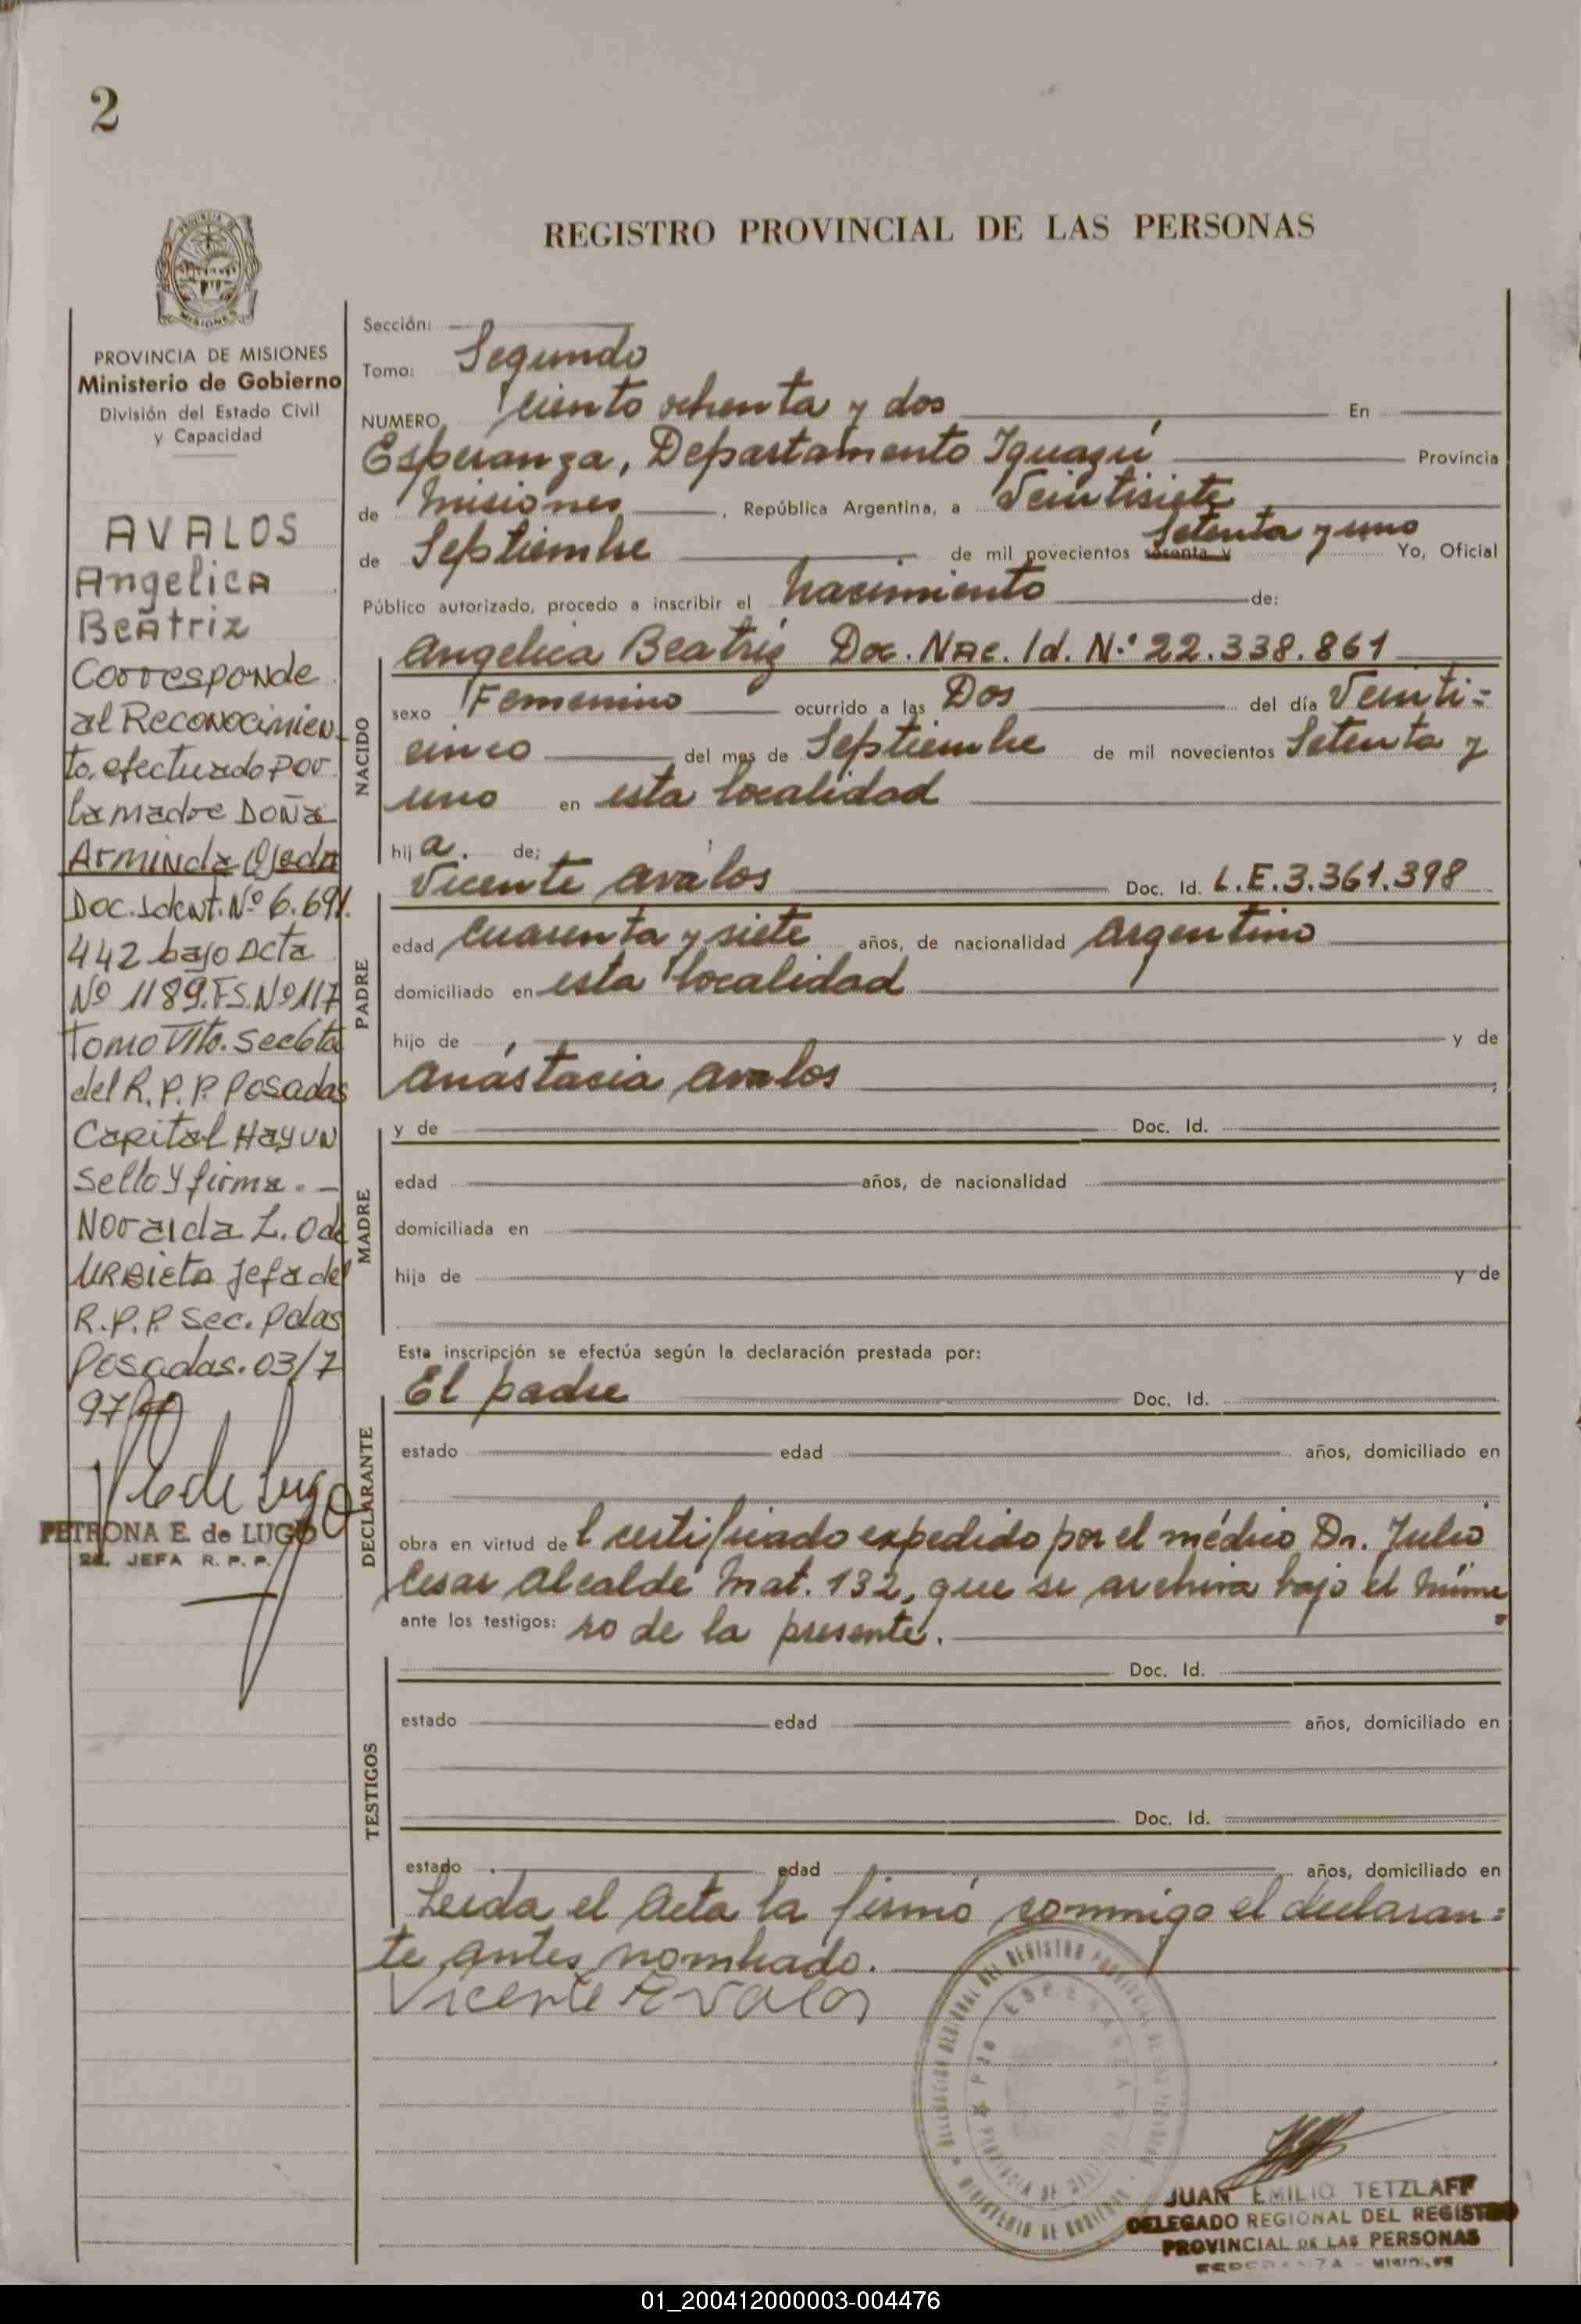 2
REGISTRO PROVINCIAL DE LAS PERSONAS
MISIONES
PROVINCIA DE MISIONES
Ministerio de Gobierno
División del Estado Civil
y Capacidad
AVALOS
Angelica
Beatriz
Corresponde
al Reconocimien
to. efectuado por
la madre Doña
Arminda Ojeda
Doc. Ident. Nº 6.691.
442 bajo Acta
Nº 1189. FS. Nº 117
Tomo VIto. Sec 6ta
del R. P. P. Posadas
Capital Hay un
Sello y firma. -
Noraida L. O de
Urbieta Jefa del
R. P. P. Sec. Pdas
Posadas. 03/7
97
PETRONA E. de LUGO
JEFA R. P. P.
Sección:
Tomo: Segundo
NUMERO Ciento ochenta y dos En
Esperanza, Departamento Iguazú Provincia
de Misiones, República Argentina, a Veintisiete
de Septiembre de mil novecientos sesenta y Setenta y uno Yo, Oficial
Público autorizado, procedo a inscribir el nacimiento de:
NACIDO
Angelica Beatriz Doc. Nac. Id. N.º 22.338.861
sexo Femenino ocurrido a las Dos del día Veinti=
cinco del mes de Septiembre de mil novecientos Setenta y
uno en esta localidad
hij a. de:
PADRE
Vicente Avalos Doc. Id. L.E. 3.361.398
edad Cuarenta y siete años, de nacionalidad Argentino
domiciliado en esta localidad
hijo de y de
Anastacia Avalos
MADRE
y de Doc. Id.
edad años, de nacionalidad
domiciliada en
hija de y de
Esta inscripción se efectúa según la declaración prestada por:
DECLARANTE
El padre Doc. Id.
estado edad años, domiciliado en
obra en virtud de l certificado expedido por el médico Dr. Julio
Cesar Alcalde Mat. 132, que se archiva bajo el núme
ante los testigos: ro de la presente.
TESTIGOS
Doc. Id.
estado edad años, domiciliado en
Doc. Id.
estado edad años, domiciliado en
Leida el Acta la firmó conmigo el declaran=
te antes nombrado.
Vicente Avalos
JUAN EMILIO TETZLAFF
DELEGADO REGIONAL DEL REGISTRO
PROVINCIAL DE LAS PERSONAS
01_200412000003-004476